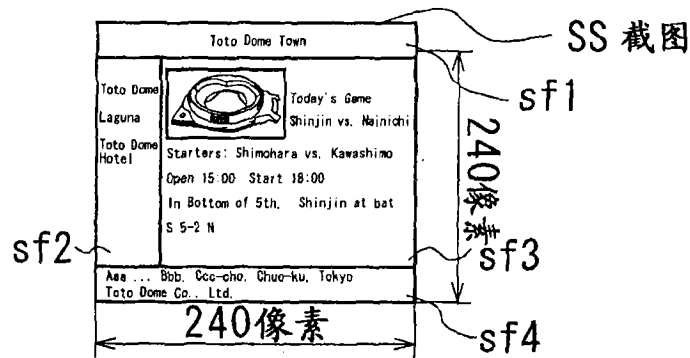 SS 截图
Toto Dome Town
sf1
Toto Dome
Laguna
Toto Dome
Hotel
Today's Game
Shinjin vs. Nainichi
Starters: Shimohara vs. Kawashimo
Open 15:00 Start 18:00
In Bottom of 5th. Shinjin at bat
S 5-2 N
240像素
sf2
sf3
Aaa ... Bbb, Ccc-cho, Chuo-ku, Tokyo
Toto Dome Co., Ltd.
240像素
sf4